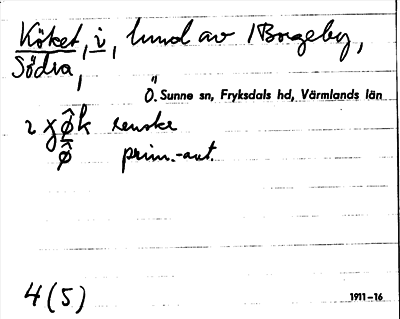 Köket, i, lund av Borgeby,
Södra,
Ö. Sunne sn, Fryksdals hd, Värmlands län
prim.-aut.
4(5)
1911–16